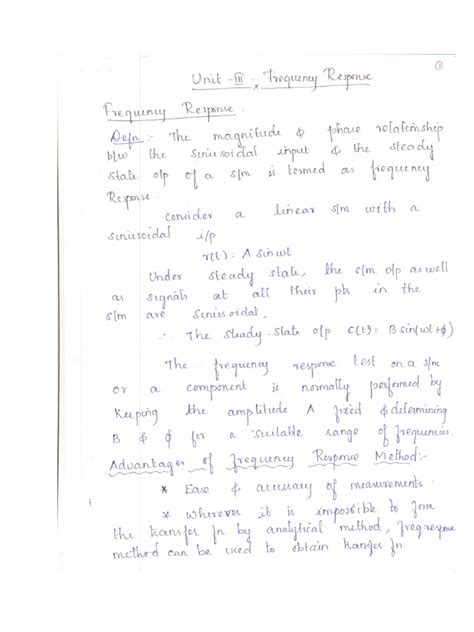 ①
Unit - III . Frequency Response
x
Frequency Response :
Defn :- The magnitude & phase relationship
b/w the sinusoidal input & the steady
state o/p of a s/m is termed as frequency
Response.
Consider a linear s/m with a
sinusoidal i/p
r(t) = A sin wt
Under steady state, the s/m o/p as well
as signals at all their pts in the
s/m are sinusoidal,
∴ The steady-state o/p C(t) = B sin(wt+ϕ)
The frequency response test on a s/m
or a component is normally performed by
keeping the amplitude A fixed & determining
B & ϕ for a suitable range of frequencies.
Advantages of frequency Response Method:-
* Ease & accuracy of measurements.
* Wherever it is impossible to form
the transfer fn by analytical method, freq response
method can be used to obtain transfer fn.